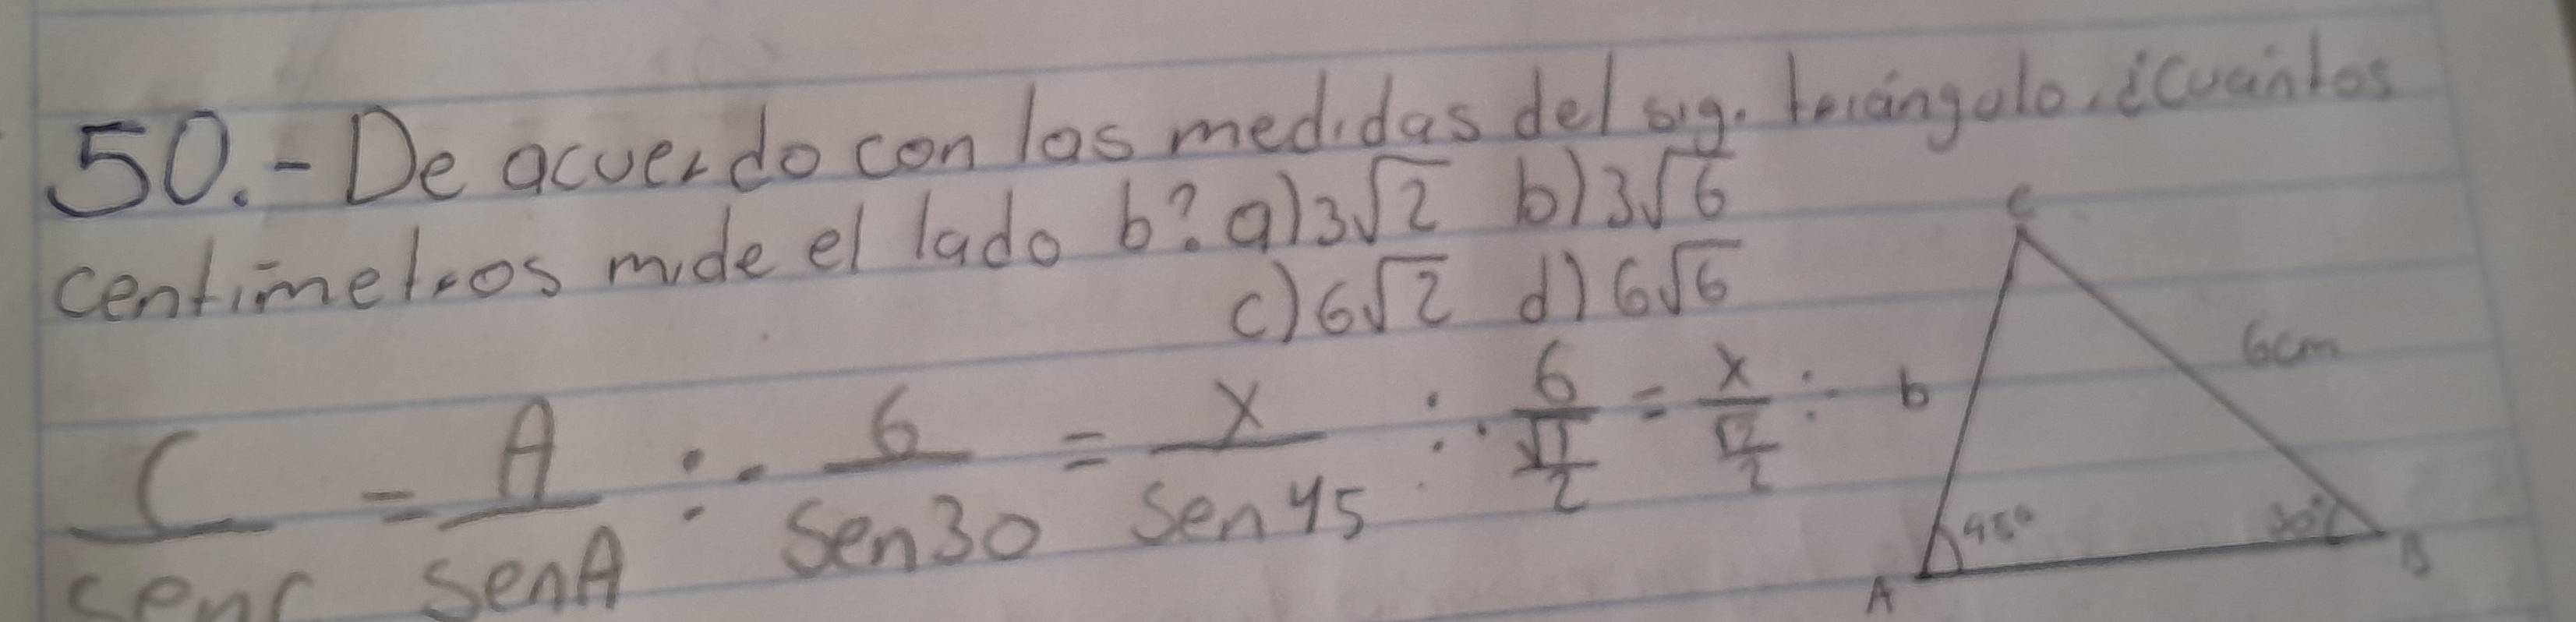 50.- De acuerdo con las medidas del sig. triángulo. ¿Cuántos
centímetros mide el lado b? a) 3√2 b) 3√6
c) 6√2 d) 6√6
C/senC = A/senA ∴ 6/Sen30 = x/Sen45 ∴ 6/(√1/2) = x/(√2/2) ∴
C
6cm
b
45° 30°
A B